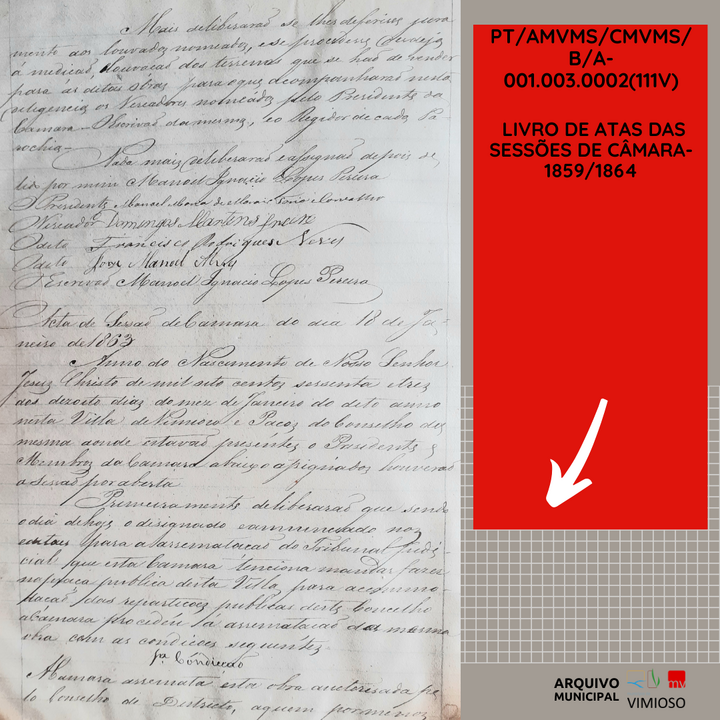 Mais deliberarão se lhes deferisse jura-
mento aos louvados nomeados, e se procedesse
á medição, e louvação dos terrenos que se hão de vender
para as ditas obras, para o que acompanharão nesta
deligencia os Vereadores nomeados pelo Presidente da
Camara = Escrivão da mesma, e o Regedor de cada Pa-
rochia =
Nada mais deliberarão e assignão depois de
lida por mim Manoel Ignacio Lopes Pereira
O Presidente Manoel Maria de Moraes
O Vereador Domingos Martins
O dito Francisco Rodrigues Neves
O dito José Manoel Alves
O Escrivão Manoel Ignacio Lopes Pereira
Acta da Sessão de Camara do dia 18 de Ja-
neiro de 1863
Anno do Nascimento de Nosso Senhor
Jesus Christo de mil oito centos sessenta e tres
aos dezoito dias do mez de Janeiro do dito anno
nesta Villa de Vimioso e Paços do Conselho da
mesma aonde estavão presentes o Presidente e
Membros da Camara abaixo assignados houverão
a Sessão por aberta
Primeiramente deliberarão que sendo
o dia de hoje o designado e annunciado nos
editaes para a arrematação do Tribunal Judi-
cial que esta Camara tenciona mandar fazer
na praça publica desta Villa para acommo-
dação das repartições publicas deste Concelho
a Camara procedeu á arrematação da mesma
obra com as condições seguintes
1ª Condicção
A Camara arremata esta obra autorisada pe-
lo Conselho de Districto, a quem por menos
PT/AMVMS/CMVMS/
B/A-
001.003.0002(111V)
LIVRO DE ATAS DAS
SESSÕES DE CÂMARA-
1859/1864
ARQUIVO
MUNICIPAL
mv
VIMIOSO